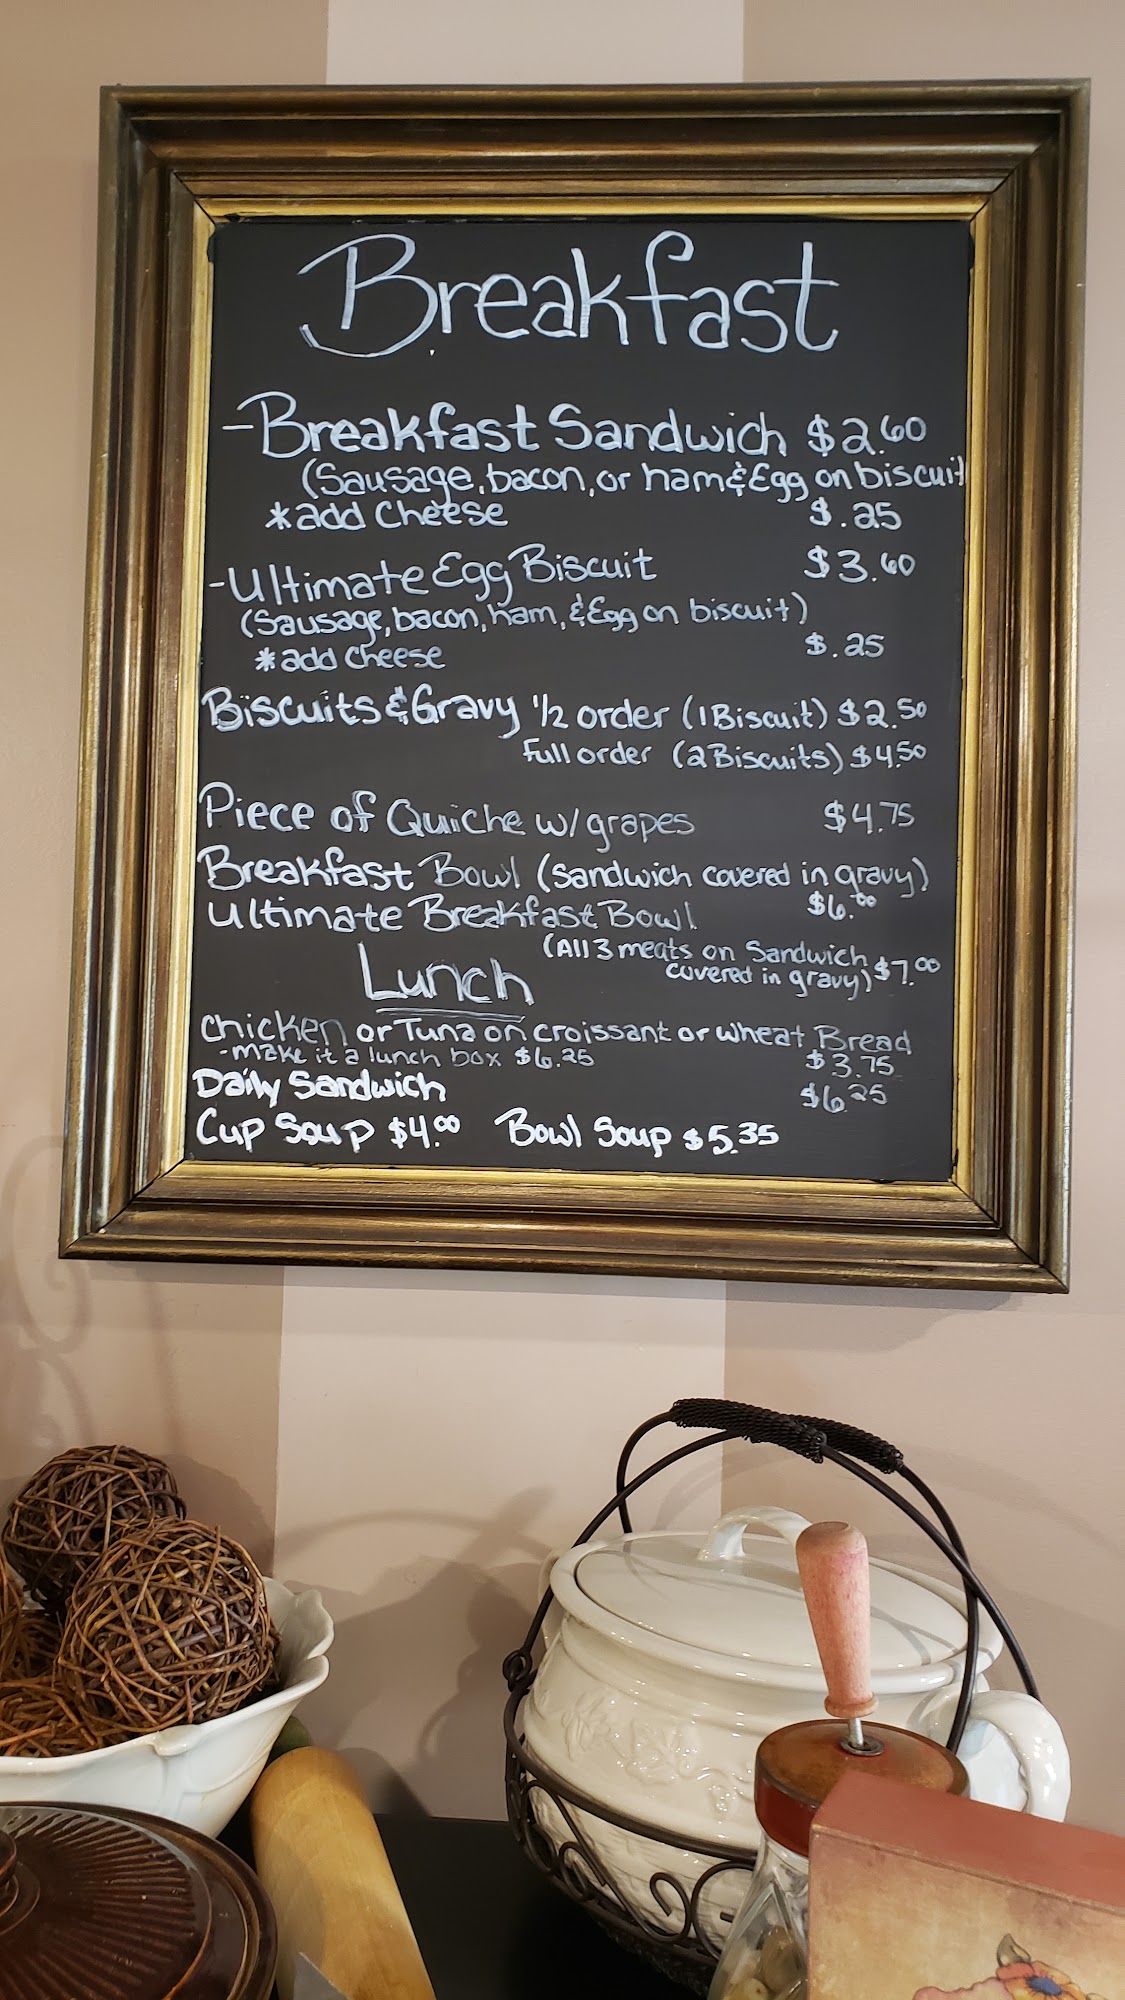 Breakfast
-Breakfast Sandwich $2.60
(Sausage, bacon, or ham & Egg on biscuit
*add Cheese $.25
-Ultimate Egg Biscuit $3.60
(Sausage, bacon, ham, & Egg on biscuit)
*add cheese $.25
Biscuits & Gravy 1/2 order (1 Biscuit) $2.50
full order (2 Biscuits) $4.50
Piece of Quiche w/ grapes $4.75
Breakfast Bowl (sandwich covered in gravy)
$6.00
Ultimate Breakfast Bowl
(All 3 meats on Sandwich
covered in gravy) $7.00
Lunch
Chicken or Tuna on croissant or wheat Bread
-make it a lunch box $6.25 $3.75
Daily Sandwich $6.25
Cup Soup $4.00 Bowl Soup $5.35